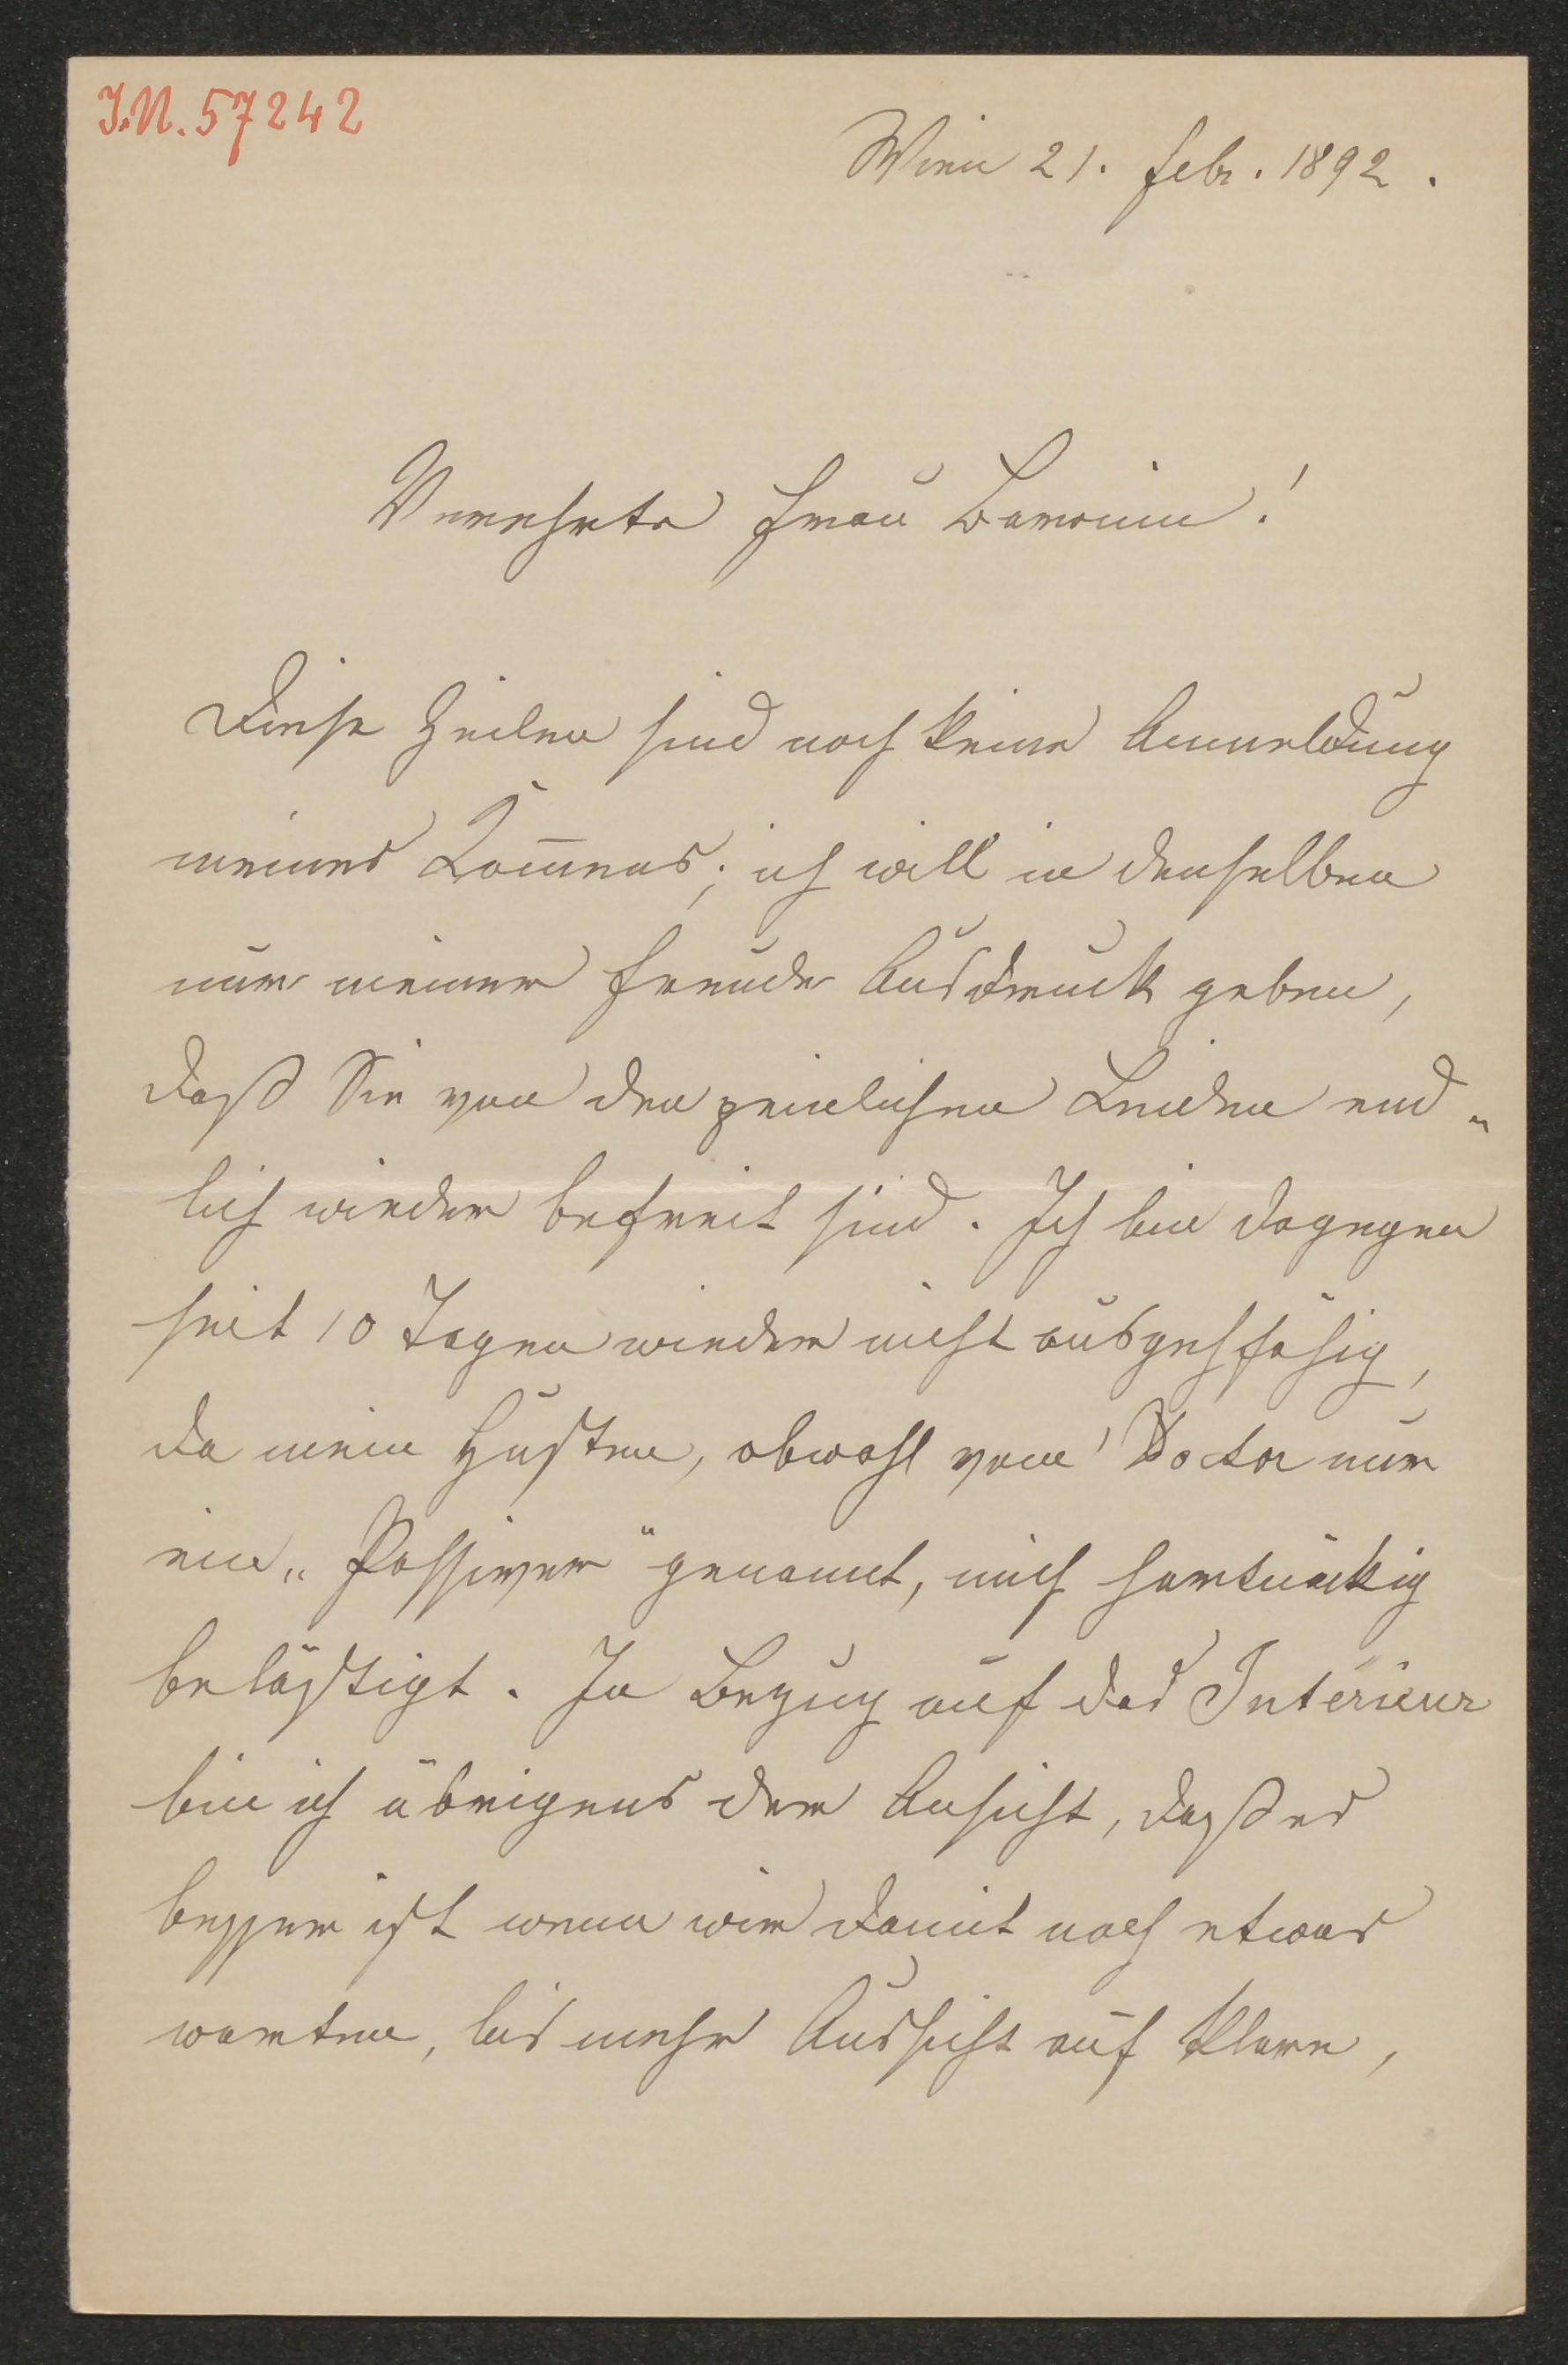 I.N. 57242
Wien 21. Febr. 1892.
Verehrte Frau Baronin!
Diese Zeilen sind noch keine Anmeldung
meines Kom̅ens; ich will in denselben
nur meiner Freude Ausdruck geben,
daß Sie von den peinlichen Leiden end„
lich wieder befreit sind. Ich bin dagegen
seit 10 Tagen wieder nicht ausgehfähig,
da mein Husten, obwohl vom Doctor nur
ein „Passiver" genannt, mich hartnäckig
belästigt. In Bezug auf das Intérieur
bin ich übrigens der Ansicht, daß es
besser ist wenn wir damit noch etwas
warten, bis mehr Aussicht auf klare,